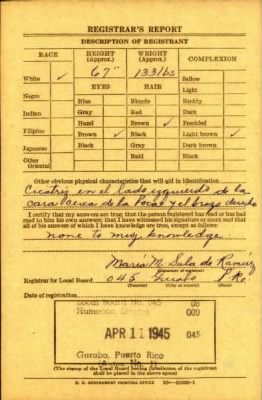 REGISTRAR'S REPORT
DESCRIPTION OF REGISTRANT
RACE HEIGHT (Approx.) WEIGHT (Approx.) COMPLEXION
67" 133 lbs
White ✓ Sallow
EYES HAIR Light
Negro Blue Blonde Ruddy
Indian Gray Red Dark
Hazel Brown ✓ Freckled
Filipino Brown ✓ Black Light brown ✓
Japanese Black Gray Dark brown
Other Oriental Bald Black
Other obvious physical characteristics that will aid in identification
Cicatriz en el lado izquierdo de la
cara cerca de la boca y el brazo derecho
I certify that my answers are true; that the person registered has read or has
had read to him his own answers; that I have witnessed his signature or mark and that
all of his answers of which I have knowledge are true, except as follows:
none to my knowledge
María M. Sula de Ramírez
(Signature of registrar)
Registrar for Local Board 045 Gurabo P.R.
(Number) (City or county) (State)
Date of registration
Local Board No. 045 08
Humacao 009
APR 11 1945 045
Gurabo, Puerto Rico
(The stamp of the Local Board having jurisdiction of the registrant
shall be placed in the above space)
U. S. GOVERNMENT PRINTING OFFICE